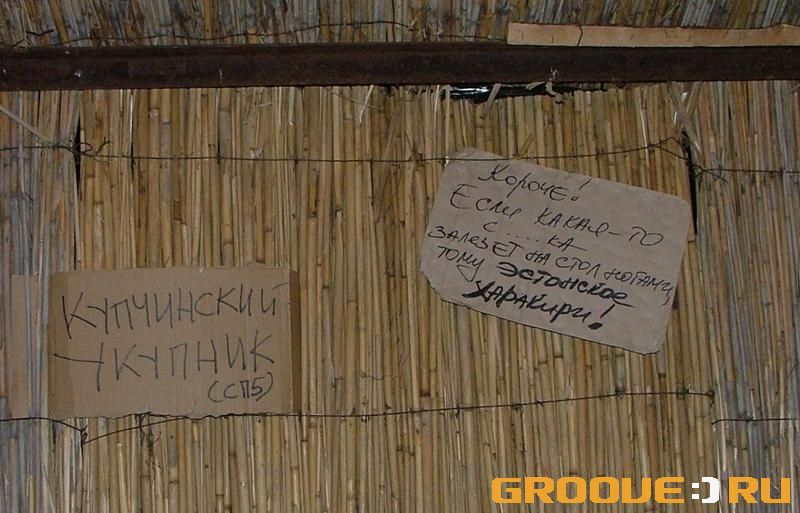 Короче!
Если какая-то
с....ка
залезет на стол ногами,
тому эстонское
харакири!
КУПЧИНСКИЙ
УКУПНИК
(СПб)
GROOVE:)RU